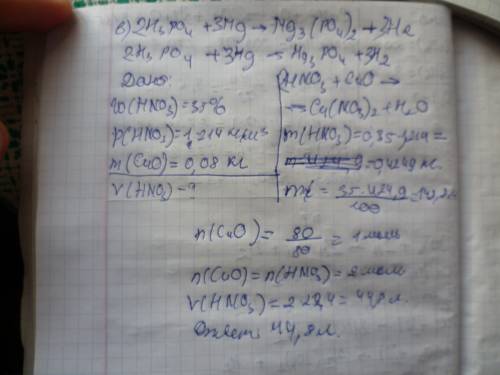 в) 2H₃PO₄ + 3Mg → Mg₃(PO₄)₂ + 3H₂
2H₃PO₄ + 3Hg → Hg₃PO₄ + 3H₂
Дано:
ω(HNO₃) = 35%
ρ(HNO₃) = 1,214
m(CuO) = 0,08 кг
V(HNO₃) - ?
HNO₃ + CuO →
→ Cu(NO₃)₂ + H₂O
m(HNO₃) = 0,35 · 1,214 =
= 0,4249 кг.
n(CuO) = 80/80 = 1 моль
n(CuO) = n(HNO₃) = 2 моль
V(HNO₃) = 2·22,4 = 44,8 л.
Ответ 44,8 л.